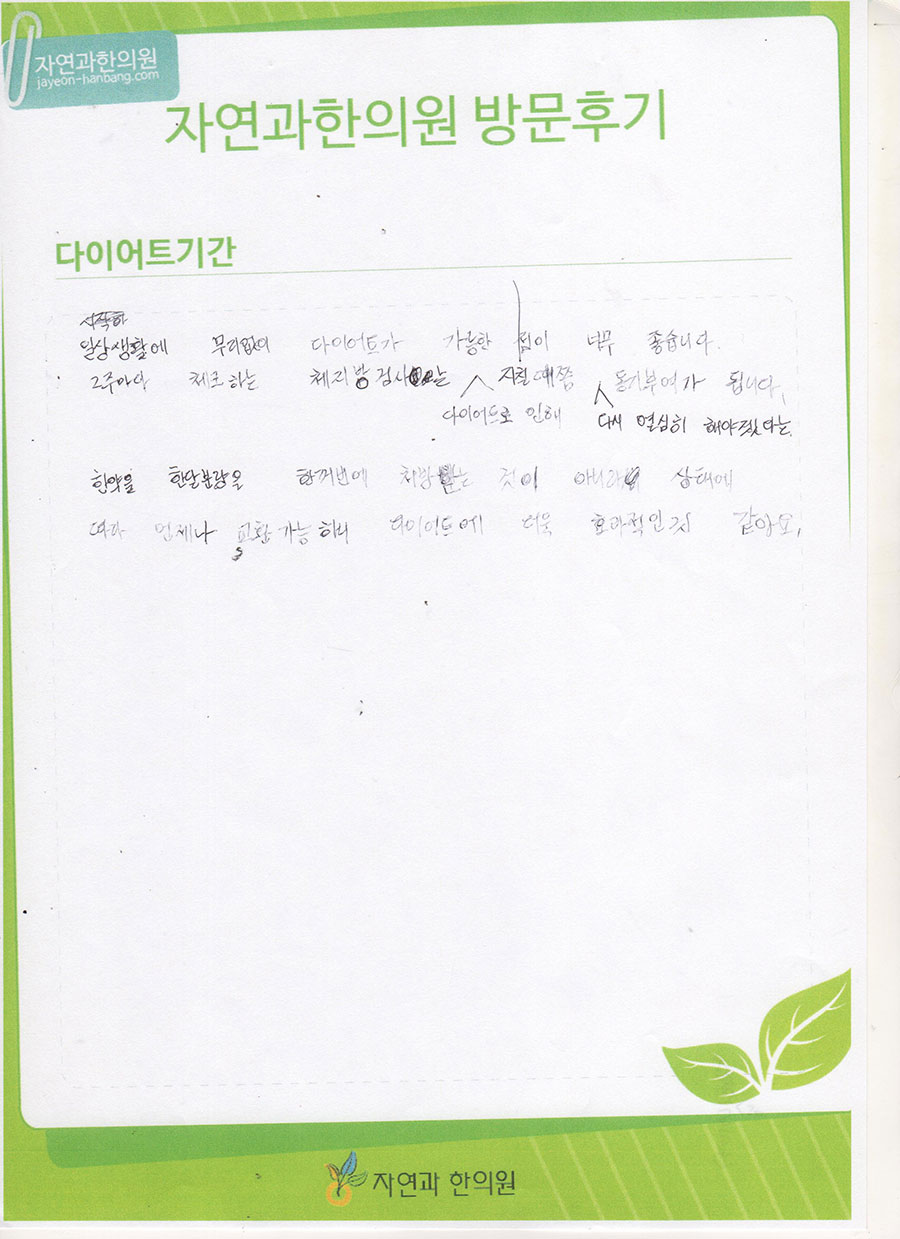 자연과한의원
jayeon-hanbang.com
자연과한의원 방문후기
다이어트기간
일상생활에 무리없이 다이어트가 가능한 점이 너무 좋습니다.
2주마다 체크하는 체지방검사는 지칠때쯤 동기부여가 됩니다.
다이어트로 인해 다시 열심히 해야겠다는
한약을 한달분량을 한꺼번에 처방받는 것이 아니라 상태에
따라 언제나 교환 가능하니 다이어트에 더욱 효과적인것 같아요.
자연과 한의원